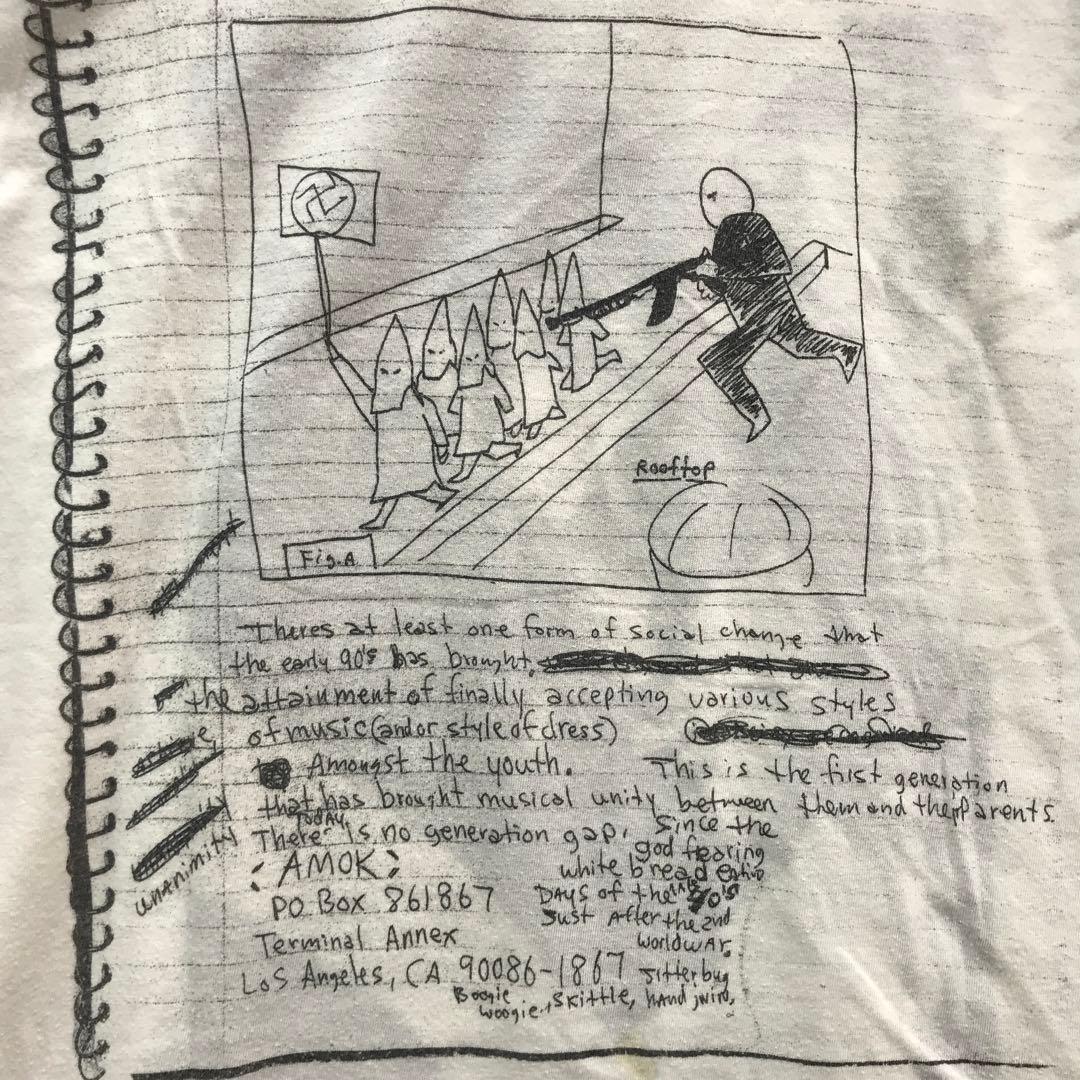 Rooftop
Fig. A
Theres at least one form of social change that
the early 90's has brought,
the attainment of finally accepting various styles
of music (and or style of dress)
Amongst the youth. This is the first generation
that has brought musical unity between them and their parents.
TODAY,
There is no generation gap, since the
god fearing
white bread eating
DAYS of the late 40's
Just After the 2nd
World WAR.
Jitterbug
Boogie
Woogie, Skittle, hand jive,
unanimity
: AMOK :
PO Box 861867
Terminal Annex
Los Angeles, CA 90086-1867